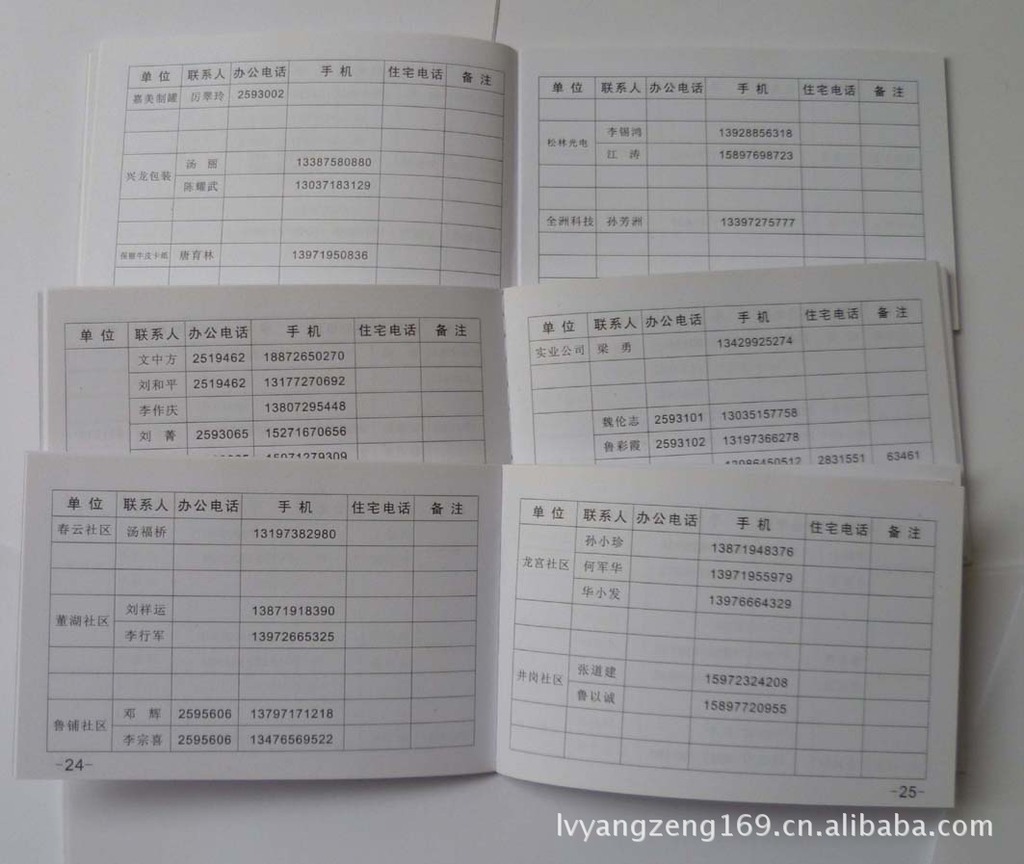 单 位 联系人 办公电话 手 机 住宅电话 备 注
嘉美制罐 厉翠玲 2593002
兴龙包装 汤 丽 13387580880
陈耀武 13037183129
唐育林 13971950836
单 位 联系人 办公电话 手 机 住宅电话 备 注
松林光电 李锡鸿 13928856318
江 涛 15897698723
全洲科技 孙芳洲 13397275777
单 位 联系人 办公电话 手 机 住宅电话 备 注
文中方 2519462 18872650270
刘和平 2519462 13177270692
李作庆 13807295448
刘 菁 2593065 15271670656
单 位 联系人 办公电话 手 机 住宅电话 备 注
实业公司 梁 勇 13429925274
魏伦志 2593101 13035157758
鲁彩霞 2593102 13197366278
2831551 63461
单 位 联系人 办公电话 手 机 住宅电话 备 注
春云社区 汤福桥 13197382980
董湖社区 刘祥运 13871918390
李行军 13972665325
鲁铺社区 邓 辉 2595606 13797171218
李宗喜 2595606 13476569522
-24-
单 位 联系人 办公电话 手 机 住宅电话 备 注
龙宫社区 孙小珍 13871948376
何军华 13971955979
华小发 13976664329
井岗社区 张道建 15972324208
鲁以诚 15897720955
-25-
lvyangzeng169.cn.alibaba.com